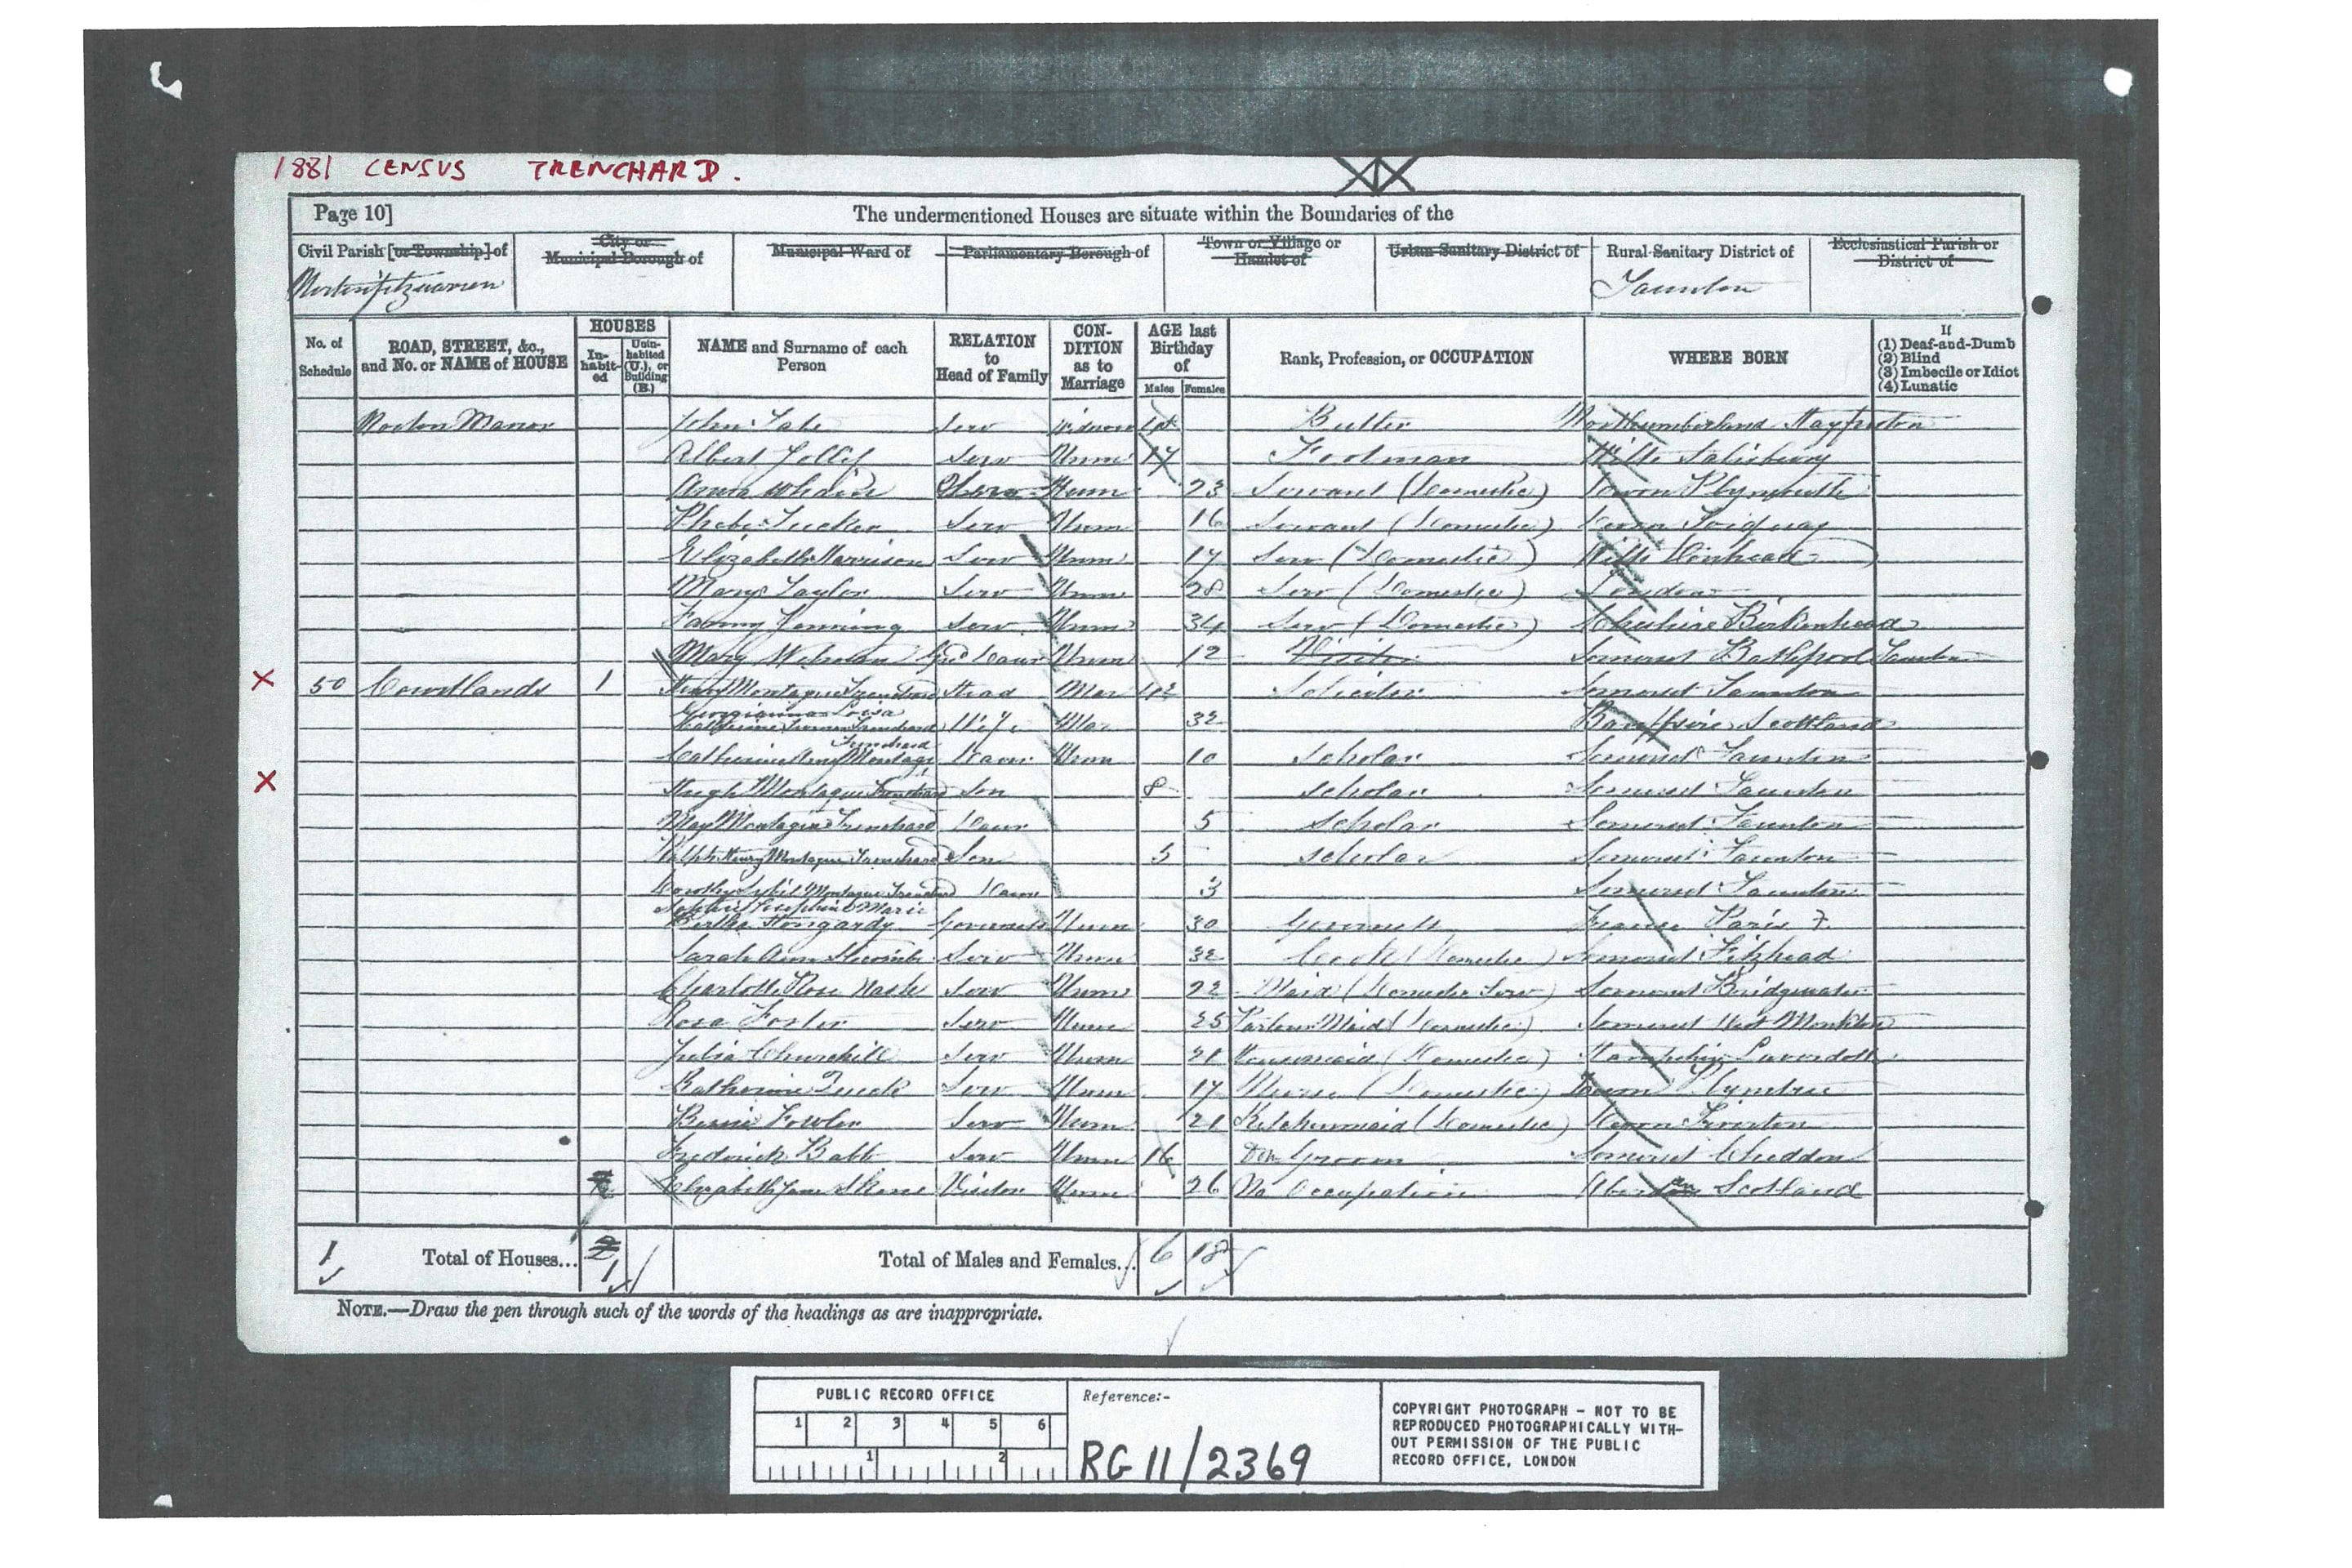 1881 CENSUS TRENCHARD.
Page 10]
The undermentioned Houses are situate within the Boundaries of the
Civil Parish [or Township] of
City or Municipal Borough of
Municipal Ward of
Parliamentary Borough of
Town or Village or Hamlet of
Urban Sanitary District of
Rural Sanitary District of
Taunton
Ecclesiastical Parish or District of
No. of Schedule
ROAD, STREET, &c., and No. or NAME of HOUSE
HOUSES
In-habit-ed
Unin-habited (U.), or Building (B.)
NAME and Surname of each Person
RELATION to Head of Family
CON-DITION as to Marriage
AGE last Birthday of
Males
Females
Rank, Profession, or OCCUPATION
WHERE BORN
If
(1) Deaf-and-Dumb
(2) Blind
(3) Imbecile or Idiot
(4) Lunatic
Norton Manor John Tate Serv Butler Northumberland
Albert Serv Unm 17 Footman Wilts Salisbury
Serv Unm 23 Servant (Domestic) Devon Plymouth
Phebe Tucker Serv Unm 16 Servant (Domestic) Devon Torquay
Elizabeth Harrison Serv Unm 17 Serv (Domestic) Wilts
Mary Taylor Serv Unm 28 Serv (Domestic) London
Fanny Jenning Serv Unm 34 Serv (Domestic) Cheshire Birkenhead
Mary Daur Unm 12 Visitor Somerset Bathpool Taunton
50 Courtlands 1 Henry Montague Trenchard Head Mar 42 Somerset Taunton
Georgianna Wife Mar 32 Scotland
Trenchard
Catherine Montage Daur Unm 10 Scholar Somerset Taunton
Hugh Montague Trenchard Son 8 Scholar Somerset Taunton
May Montague Trenchard Daur 5 Scholar Somerset Taunton
Ralph Henry Montague Trenchard Son 5 Scholar Somerset Taunton
Dorothy Sybil Montague Trenchard Daur 3 Somerset Taunton
Josephine Marie
Bertha Governess Unm 30 Governess France Paris
Sarah Ann Serv Unm 32 Cook (Domestic) Somerset Fitzhead
Charlotte Rose Nash Serv Unm 22 Maid (Domestic Serv) Somerset Bridgwater
Rosa Foster Serv Unm 25 Parlour Maid (Domestic) Somerset West Monkton
Julia Churchill Serv Unm 21 Housemaid (Domestic) Hampshire
Katherine Serv Unm 17 Nurse (Domestic) Devon
Bessie Fowler Serv Unm 21 Kitchenmaid (Domestic) Devon Tiverton
Frederick Babb Serv Unm 16 Groom Somerset Cheddon
Elizabeth Jane Visitor Unm 26 No Occupation Scotland
1 Total of Houses... 2 1 Total of Males and Females... 6 18
NOTE.—Draw the pen through such of the words of the headings as are inappropriate.
PUBLIC RECORD OFFICE
1 2 3 4 5 6
1 2
Reference:-
RG 11/2369
COPYRIGHT PHOTOGRAPH - NOT TO BE
REPRODUCED PHOTOGRAPHICALLY WITH-
OUT PERMISSION OF THE PUBLIC
RECORD OFFICE, LONDON